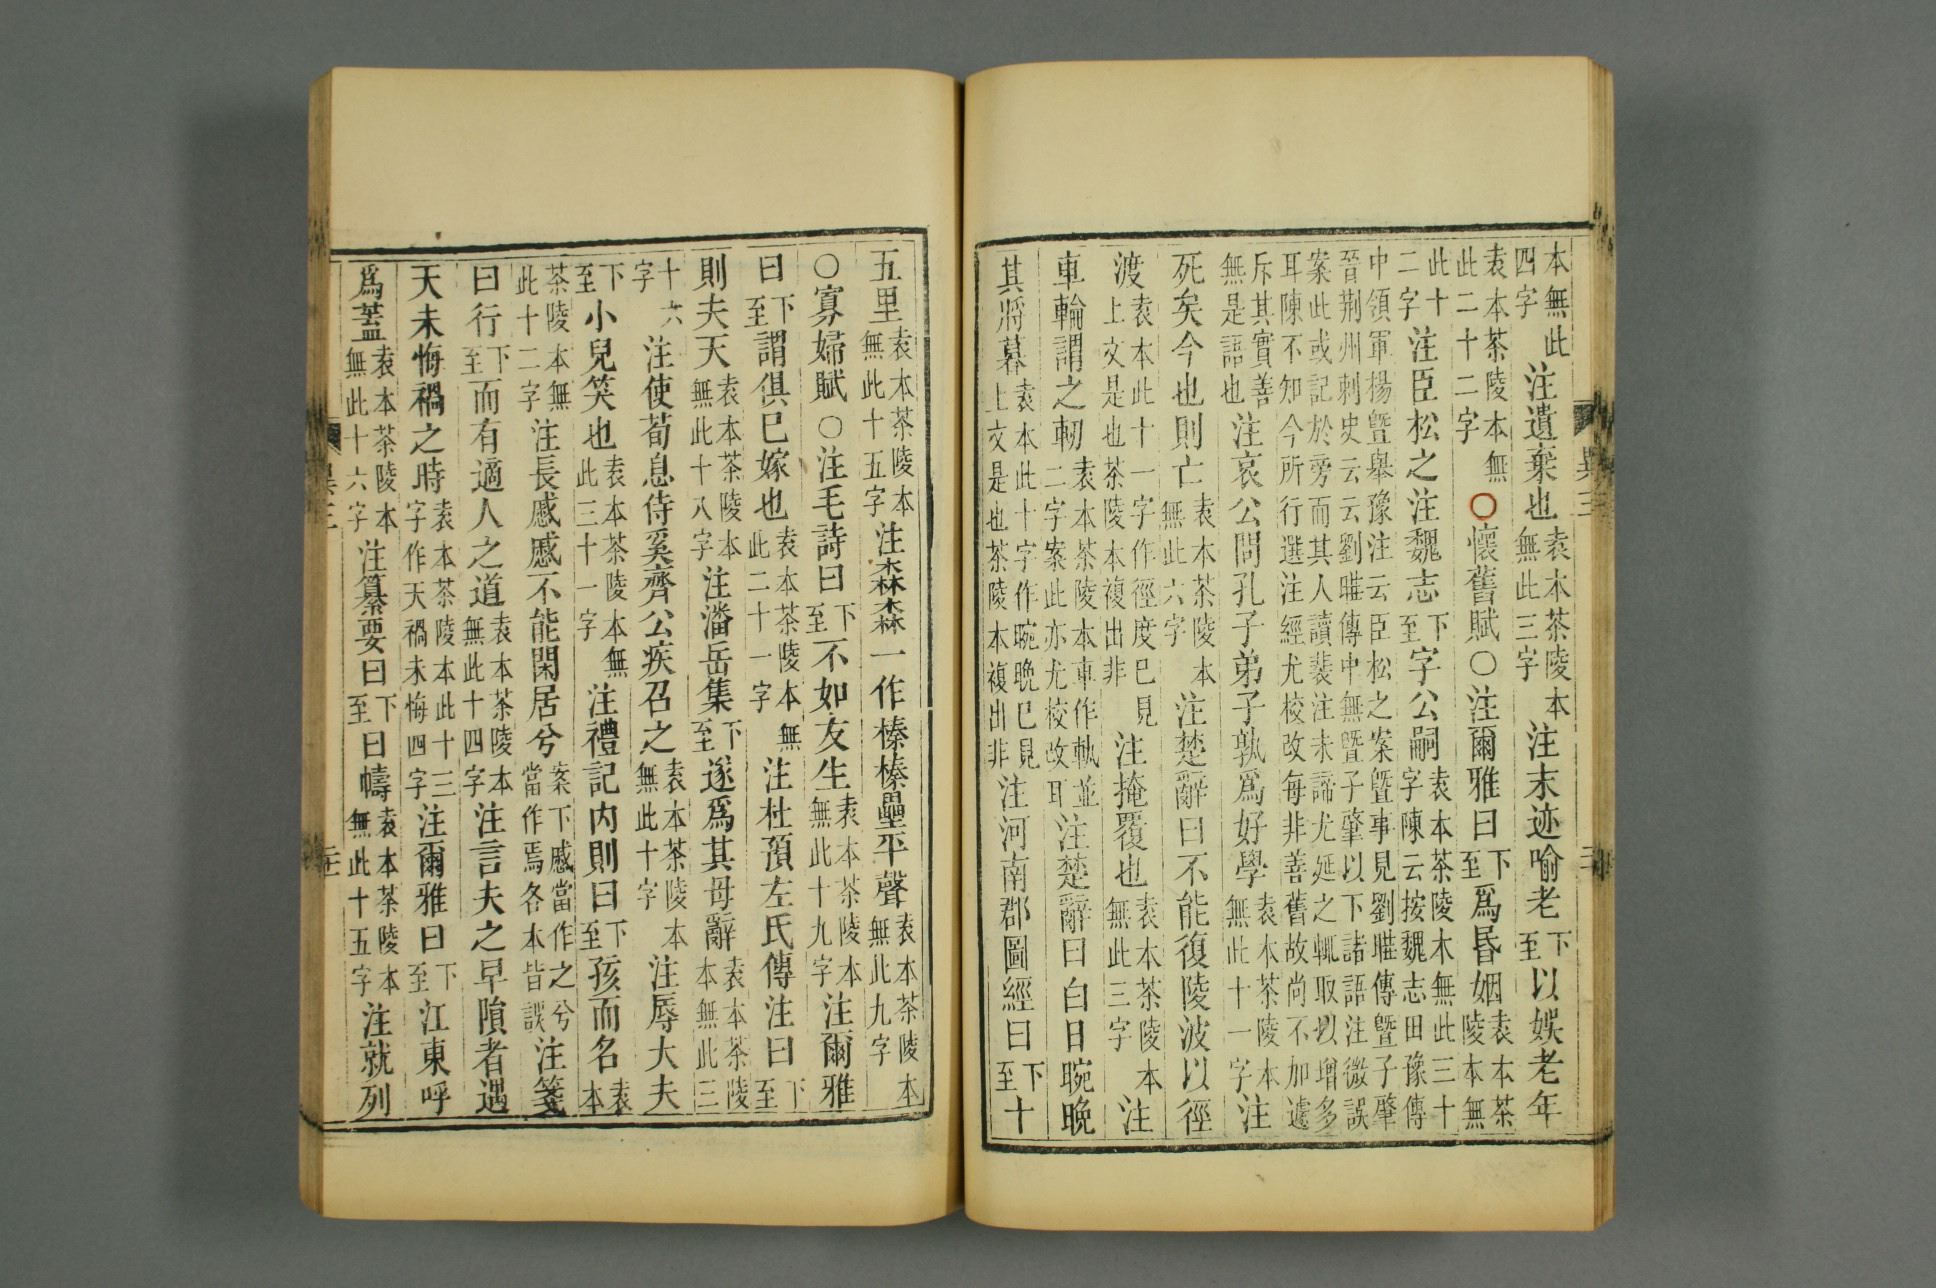 本無此四字注遺棄也袁本茶陵本無此三字注末迹喻老下至以娛老年
袁本茶陵本無此二十二字○懷舊賦○注爾雅曰下至爲昬姻袁本茶陵本無
此十二字注臣松之注魏志下至字公嗣袁本茶陵本無此三十字陳云按魏志田豫傳
中領軍楊曁舉豫注云臣松之案曁事見劉曄傳曁子肇晉荆州刺史云云劉曄傳中無曁子肇以下諸語注微誤
案此或記於旁而其人讀裴注未諦尤延之輒取以增多耳陳不知今所行選注經尤校改每非善舊故尚不加遽
斥其實善無是語也注哀公問孔子弟子孰爲好學袁本茶陵本無此十一字注
死矣今也則亡袁本茶陵本無此六字注楚辭曰不能復陵波以徑
渡袁本此十一字作徑度已見上文是也茶陵本複出非注掩覆也袁本茶陵本無此三字注
車輪謂之軔袁本茶陵本車作軌並二字案此亦尤校改耳注楚辭曰白日晼晚
其將暮袁本此十字作晼晚已見上文是也茶陵本複出非注河南郡圖經曰下至十
五里袁本茶陵本無此十五字注森森一作榛榛壘平聲袁本茶陵本無此九字
○寡婦賦○注毛詩曰下至不如友生袁本茶陵本無此十九字注爾雅
曰下至謂俱已嫁也袁本茶陵本無此二十一字注杜預左氏傳注曰下至
則夫天袁本茶陵本無此十八字注潘岳集下至遂爲其母辭袁本茶陵本無此三
十六字注使荀息侍奚齊公疾召之袁本茶陵本無此十字注辱大夫
下至小兒笑也袁本茶陵本無此三十一字注禮記内則曰下至孩而名袁本
茶陵本無此十二字注長慼慼不能閑居兮案下慼當作之兮當作焉各本皆誤注箋
曰行下至而有適人之道袁本茶陵本無此十四字注言夫之早隕者遇
天未悔禍之時袁本茶陵本此十三字作天禍未悔四字注爾雅曰下至江東呼
爲蓋袁本茶陵本無此十六字注纂要曰下至曰幬袁本茶陵本無此十五字注就列